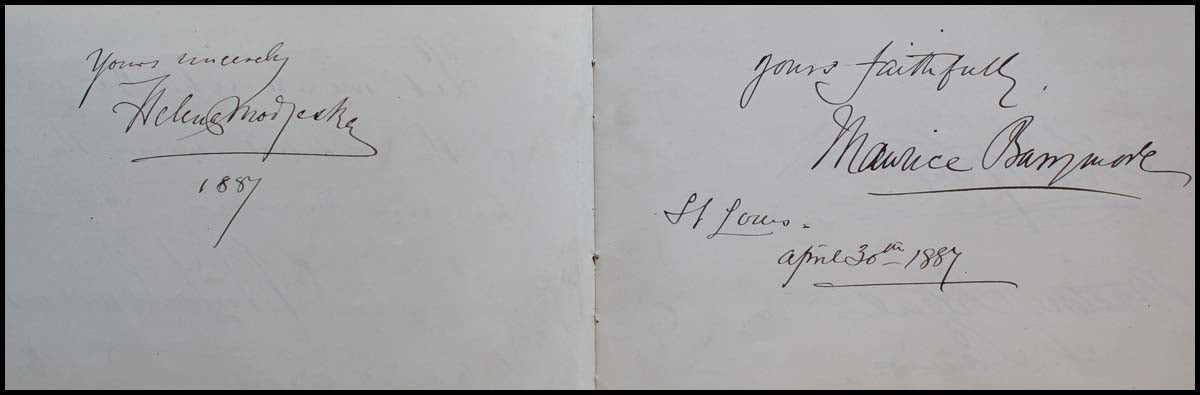 Yours sincerely
Helena Modjeska
1887
yours faithfully
Maurice Barrymore
St Louis.
April 30th 1887